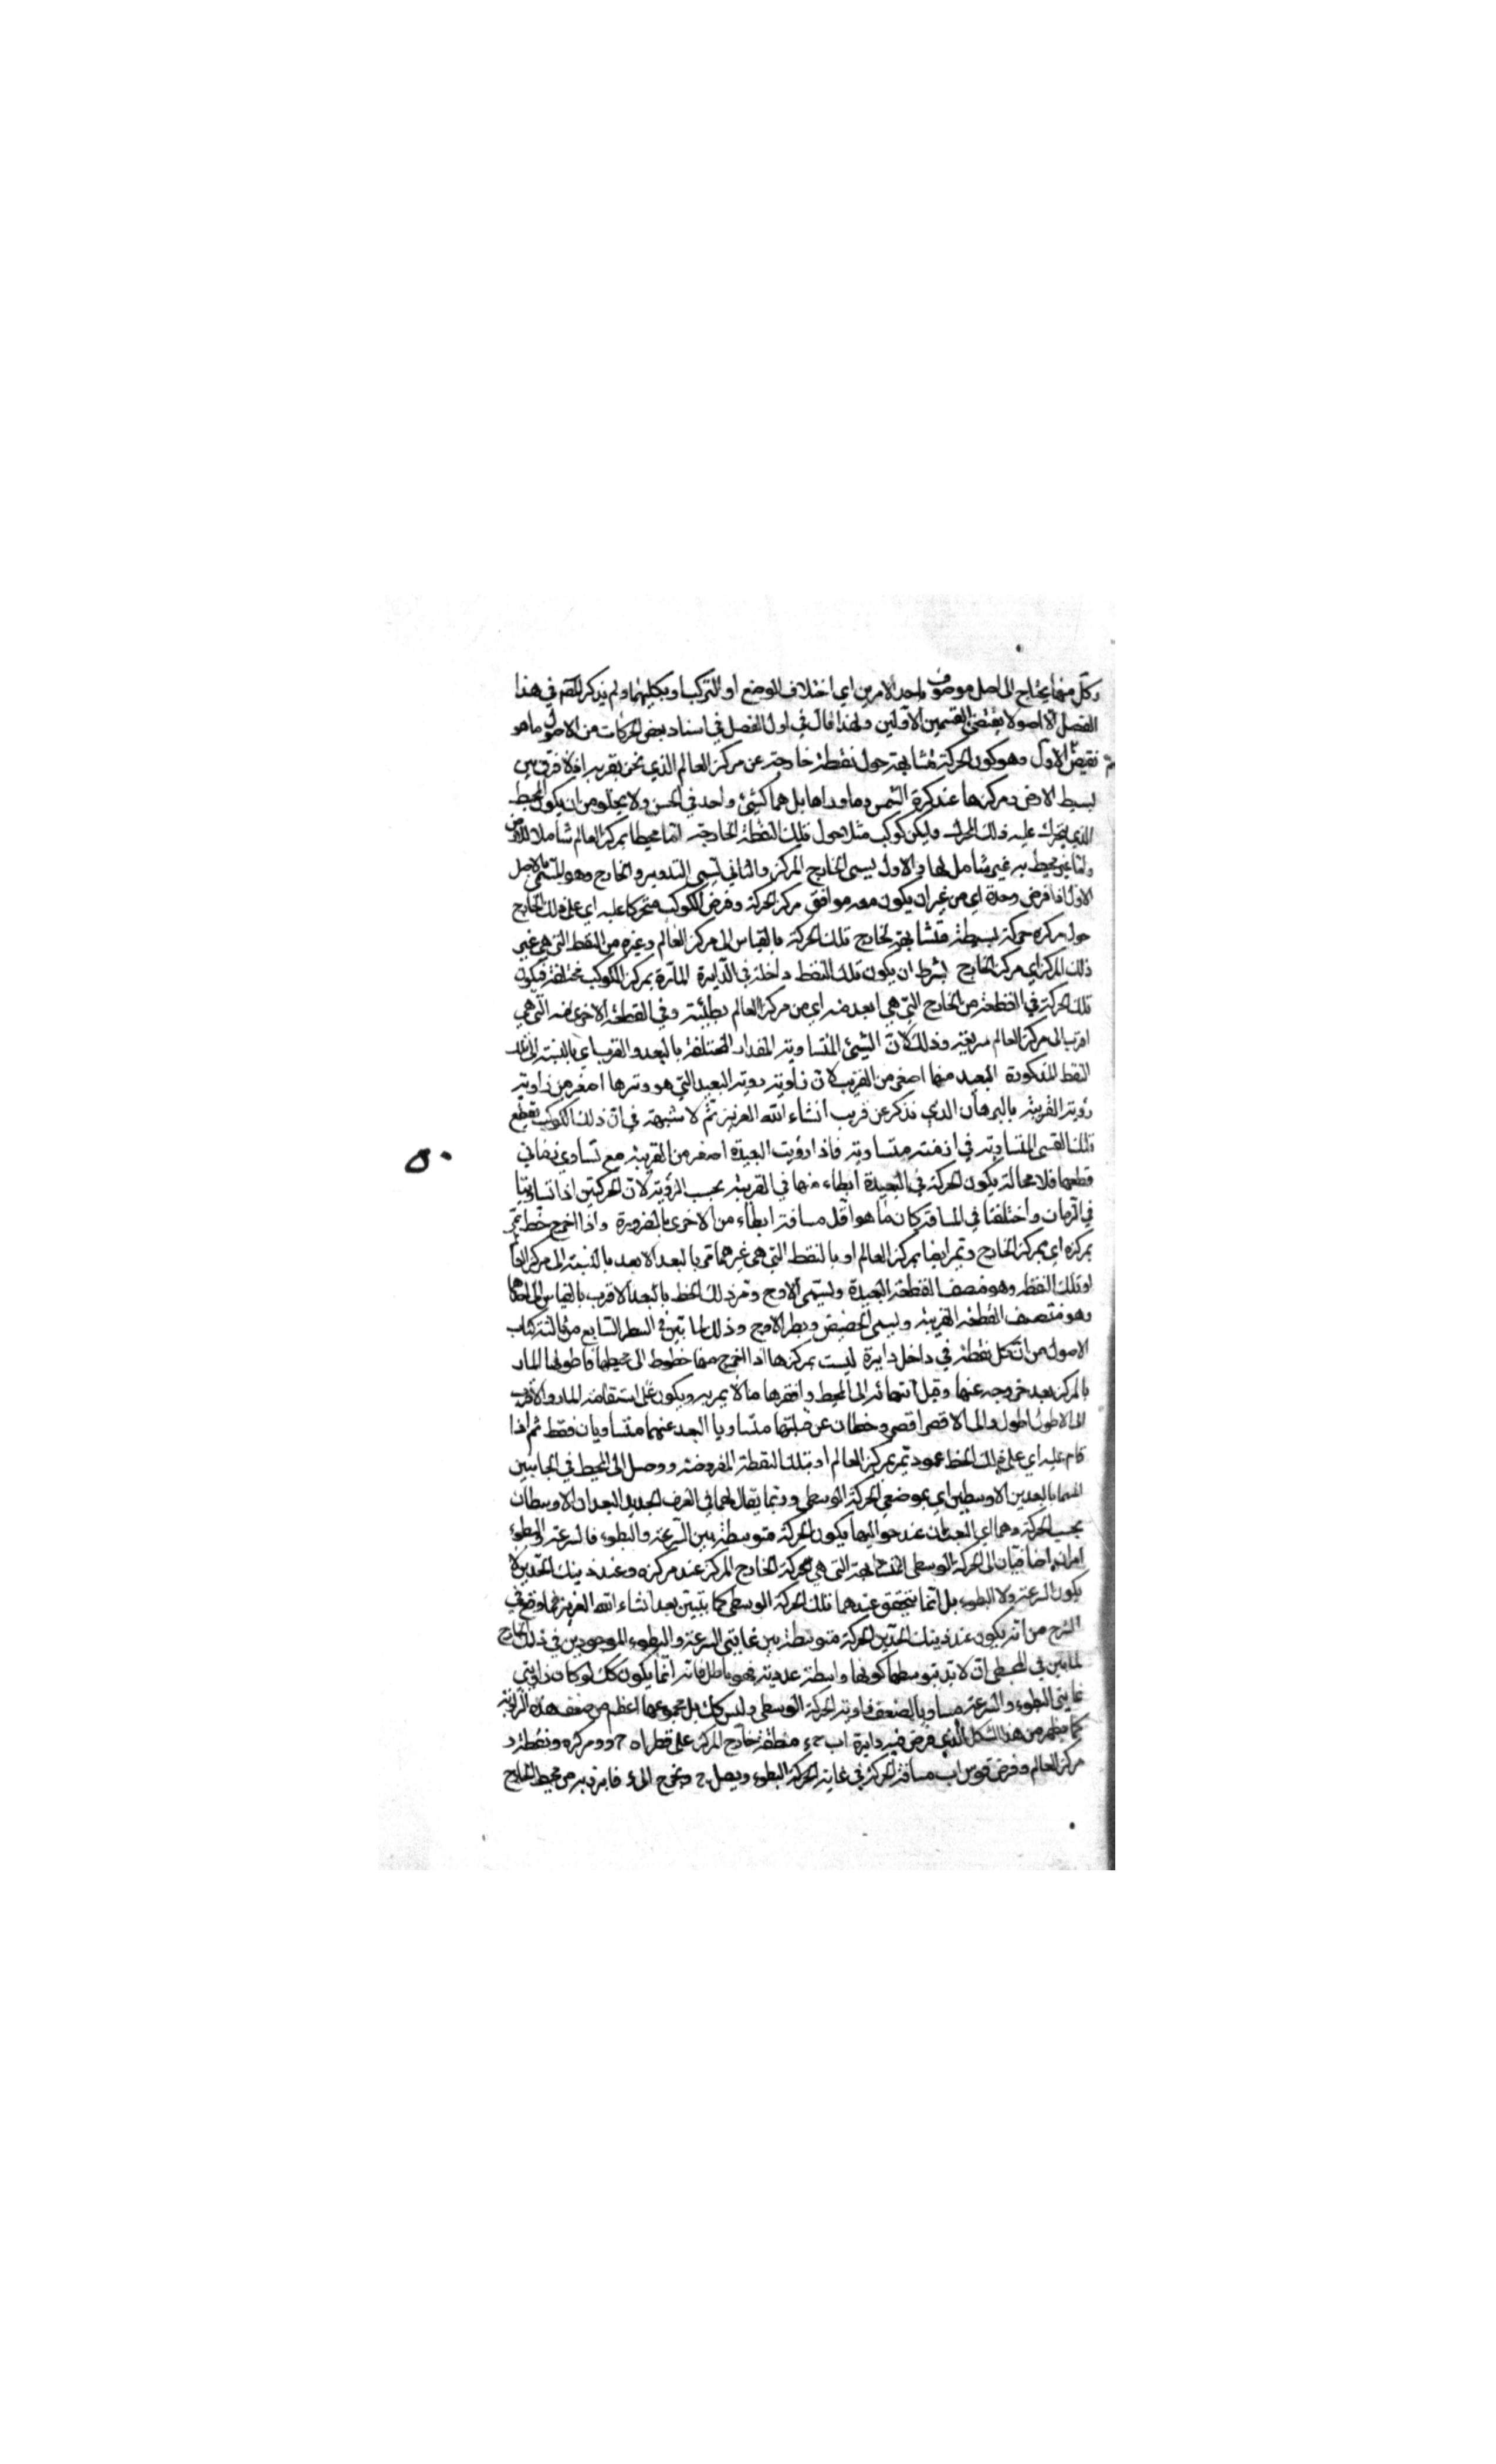 وكل منها يحتاج الى اصل موصوف باحد الامرين اي اختلاف الوضع او التركيب او بكليهما ولم يذكر المص في هذا
الفصل الا اصولا يقتضي القسمين الاولين ولهذا قال في اول الفصل في اسناد بعض الحركات من الاصول ما هو
نقيض الاول وهو كون الحركة متشابهة حول نقطة خارجة عن مركز العالم الذي نحن بقربه اذ لا فرق بين
بسيط الارض ومركزها عند كرة الشمس وما وراها بل هما كشيء واحد في الحس ولا يخلو من ان يكون المحيط
الذي يتحرك عليه ذلك المحرك وليكن كوكب مثلا حول تلك النقطة الخارجة اما محيطا بمركز العالم شاملا للارض
واما غير محيط به غير شامل لها والاول يسمى الخارج المركز والثاني يسمى التدوير والخارج وهو المسمى بالاصل
الاول اذا فرض وحده اي من غير ان يكون معه موافق مركز الحركة وفرض الكوكب متحركا عليه اي على ذلك الخارج
حول مركزه حركة بسيطة متشابهة لخارج تلك الحركة بالقياس الى مركز العالم وغيره من النقط التي هي غير
ذلك المركز اي مركز الخارج بشرط ان يكون تلك النقط داخلة في الدايرة المارة بمركز الكوكب مختلفة فيكون
تلك الحركة في القطعة من الخارج التي هي ابعد منه اي من مركز العالم بطيئة وفي القطعة الاخرى منه التي هي
اقرب الى مركز العالم سريعة وذلك لان الشيئ المتساوية المقدار المختلفة بالبعد والقرب اي بالنسبة الى تلك
النقط المذكورة البعيد منها اصغر من القريب لان زاوية روية البعيد التي هو وترها اصغر من زاوية
رؤية القريبة بالبرهان الذي نذكر عن قريب انشاء الله العزيز ثم لا شبهة في ان ذلك الكوكب يقطع
تلك القسي المتساوية في ازمنة متساوية فاذا رؤيت البعيدة اصغر من القريبة مع تساوي زماني
قطعهما فلا محالة يكون الحركة في البعيدة ابطاء منها في القريبة بحسب الرؤية لان الحركتين اذا تساويتا
في الزمان واختلفتا في المسافة كان ما هو اقل مسافة ابطاء من الاخرى بالضرورة واذا اخرج خط يمر
بمركزه اي بمركز الخارج ويمر ايضا بمركز العالم او بالنقط التي هي غيرهما مر بالبعد الابعد بالنسبة الى مركز العالم
او تلك النقط وهو منصف القطعة البعيدة ويسمى الاوج ومر ذلك الخط بالبعد الاقرب بالقياس الى احدهما
وهو منتصف القطعة القريبة ويسمى الحضيض وبطر الاوج وذلك لما تبين في السطر السابع من ثالثة كتاب
الاصول من ان كل نقطة في داخل دايرة ليست بمركزها اذا اخرج منها خطوط الى محيطها فاطولها المار
بالمركز بعد خروجه عنها وقبل انتهائه الى المحيط واقصرها ما لا يمر به ويكون على استقامة المار والاقرب
الى الاطول اطول والى الاقصر اقصر وخطان عن جنبتيهما متساويا البعد عنهما متساويان فقط ثم اذا
قام عليه اي على ذلك الخط عمود يمر بمركز العالم او بتلك النقطة المفروضة ووصل الى المحيط في الجانبين
بالبعدين الاوسطين اي بموضعي الحركة الوسطى وربما يقال لهما في العرف الجديد البعدان الاوسطان
بحسب الحركة وهما اي البعدان عند حواليهما يكون الحركة متوسطة بين السرعة والبطوء فالسرعة والبطوء
امران اضافيان الى الحركة الوسطى المتشابهة التي هي لحركة الخارج المركز عند مركزه وعند ذينك الحدين لا
يكون السرعة ولا البطوء بل انما يتحقق عندهما تلك الحركة الوسطى كما يتبين بعد انشاء الله العزيز فما وقع في
الشرح من انه يكون عند ذينك الحدين الحركة متوسطة بين غايتي السرعة والبطوء الموجودين في ذلك الخارج
لما بين في المجسطي ان لابد بتوسطها كونها واسطة عددية فهو باطل فانه انما يكون كك لو كان زاويتي
غايتي البطوء والسرعة مساويا لضعف زاوية الحركة الوسطى وليس كك بل مجموعهما اعظم من ضعف هذه الزاوية
كما يظهر من هذا الشكل الذي فرض فيه دايرة اب ج منطقة خارج المركز على قطر اه ج و ومركزه ونقطة د
مركز العالم وفرض قوس اب مسافة الحركة في غاية الحركة البطوء ويصل ويخرج الى فابزيد من محيط الخارج
٥٠